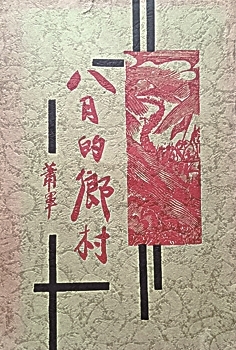 八月的鄉村
蕭軍